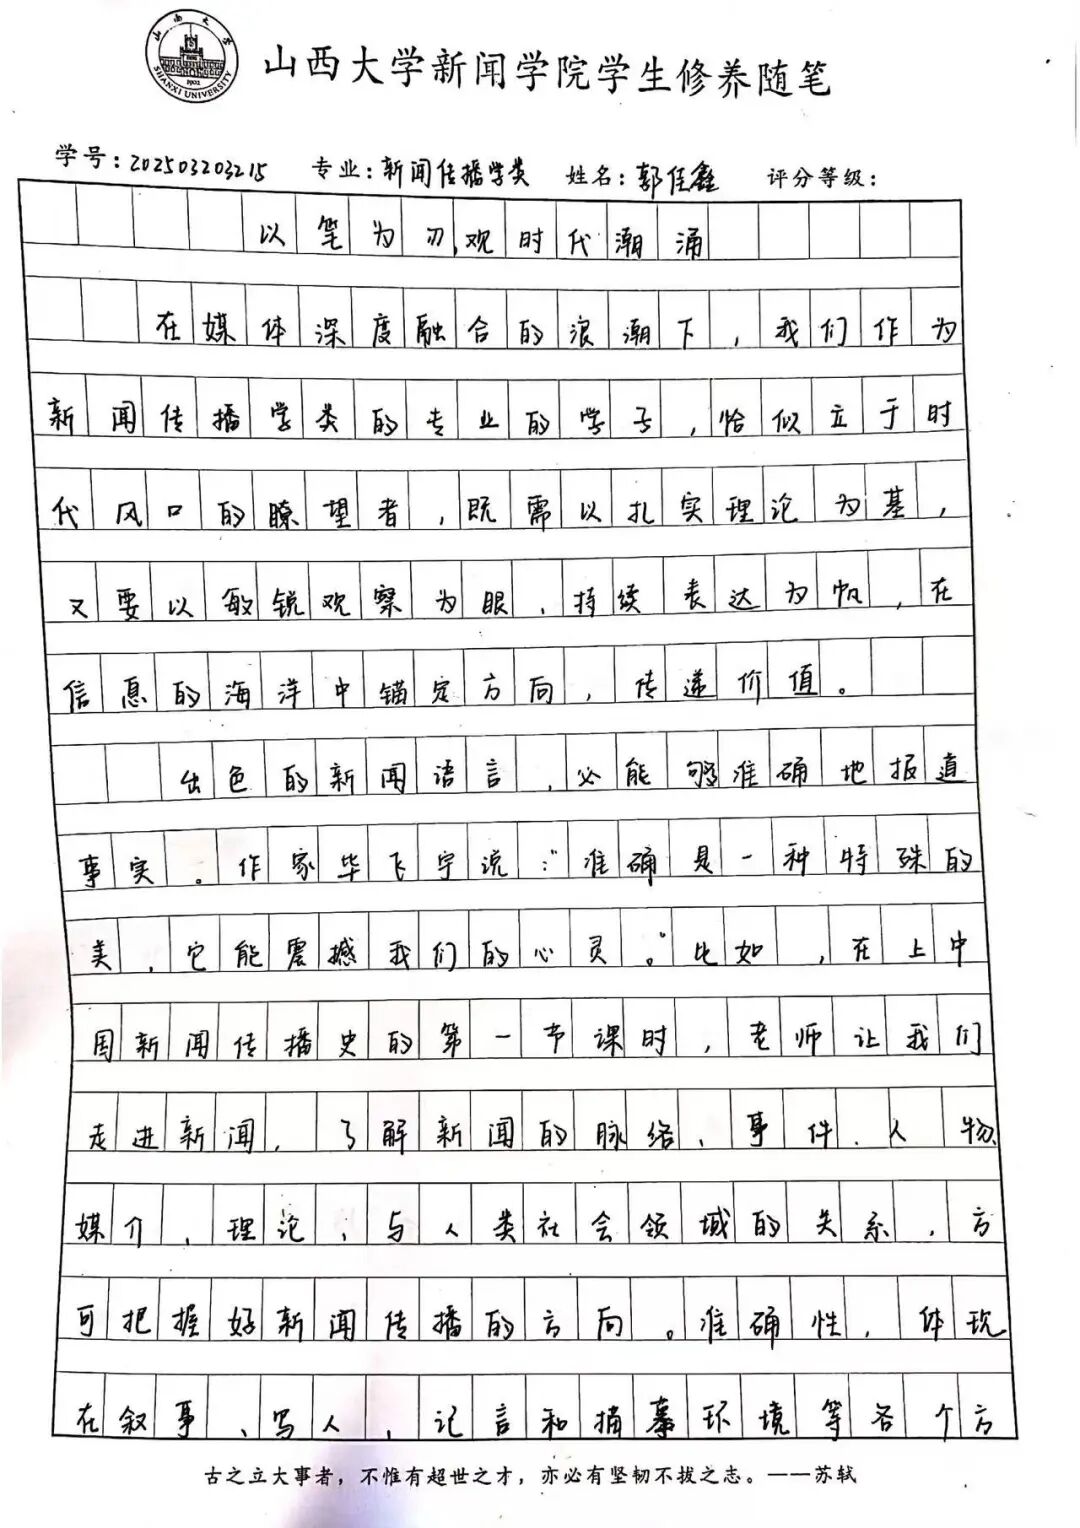 山西大学
SHANXI UNIVERSITY
1902
山西大学新闻学院学生修养随笔
学号：202503203215 专业：新闻传播学类 姓名：郭佳鑫 评分等级：
以笔为刃,观时代潮涌
在媒体深度融合的浪潮下，我们作为
新闻传播学类的专业的学子，恰似立于时
代风口的瞭望者，既需以扎实理论为基，
又要以敏锐观察为眼、持续表达为帆，在
信息的海洋中锚定方向，传递价值。
出色的新闻语言，必能够准确地报道
事实。作家毕飞宇说：“准确是一种特殊的
美，它能震撼我们的心灵。”比如，在上中
国新闻传播史的第一节课时，老师让我们
走进新闻，了解新闻的脉络、事件、人物、
媒介、理论、与人类社会领域的关系，方
可把握好新闻传播的方向。准确性，体现
在叙事、写人，记言和描摹环境等各个方
古之立大事者，不惟有超世之才，亦必有坚韧不拔之志。——苏轼